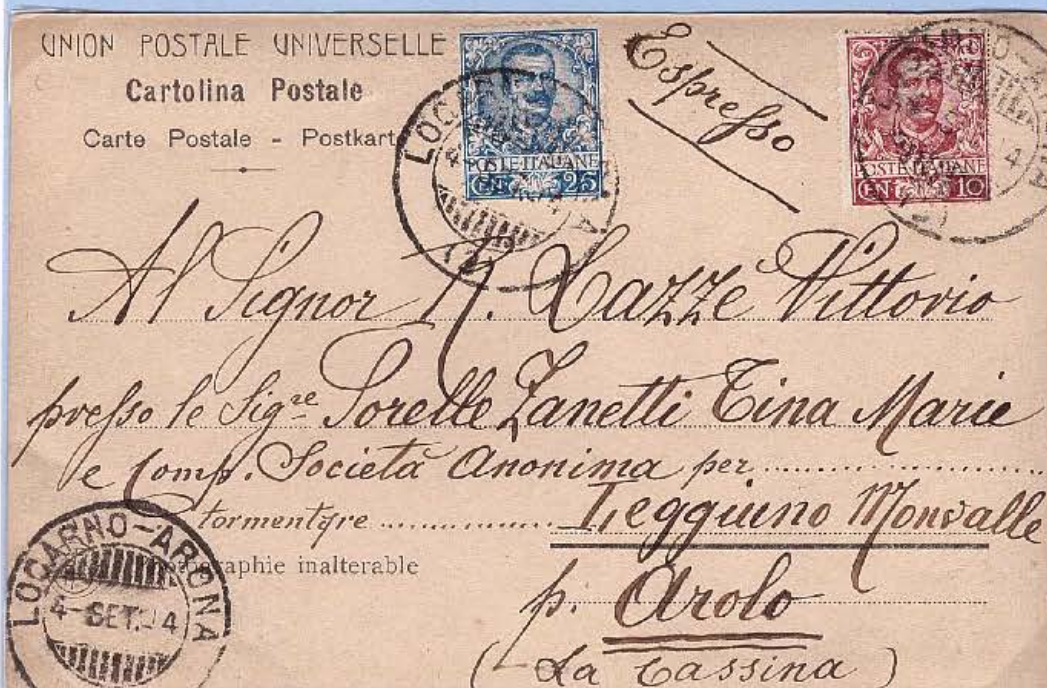 UNION POSTALE UNIVERSELLE
Cartolina Postale
Carte Postale - Postkart
Espresso
POSTE ITALIANE
CEN 25
POSTE ITALIANE
CEN 10
Al Signor N. Cazzé Vittorio
presso le Sigre Sorelle Zanetti Tina Marie
e Comp. Società Anonima per ..........
tormentare .......... Leggiuno Monvalle
graphie inalterable
p. Arolo
(La Cassina)
LOCARNO-ARONA
4-SET.-04